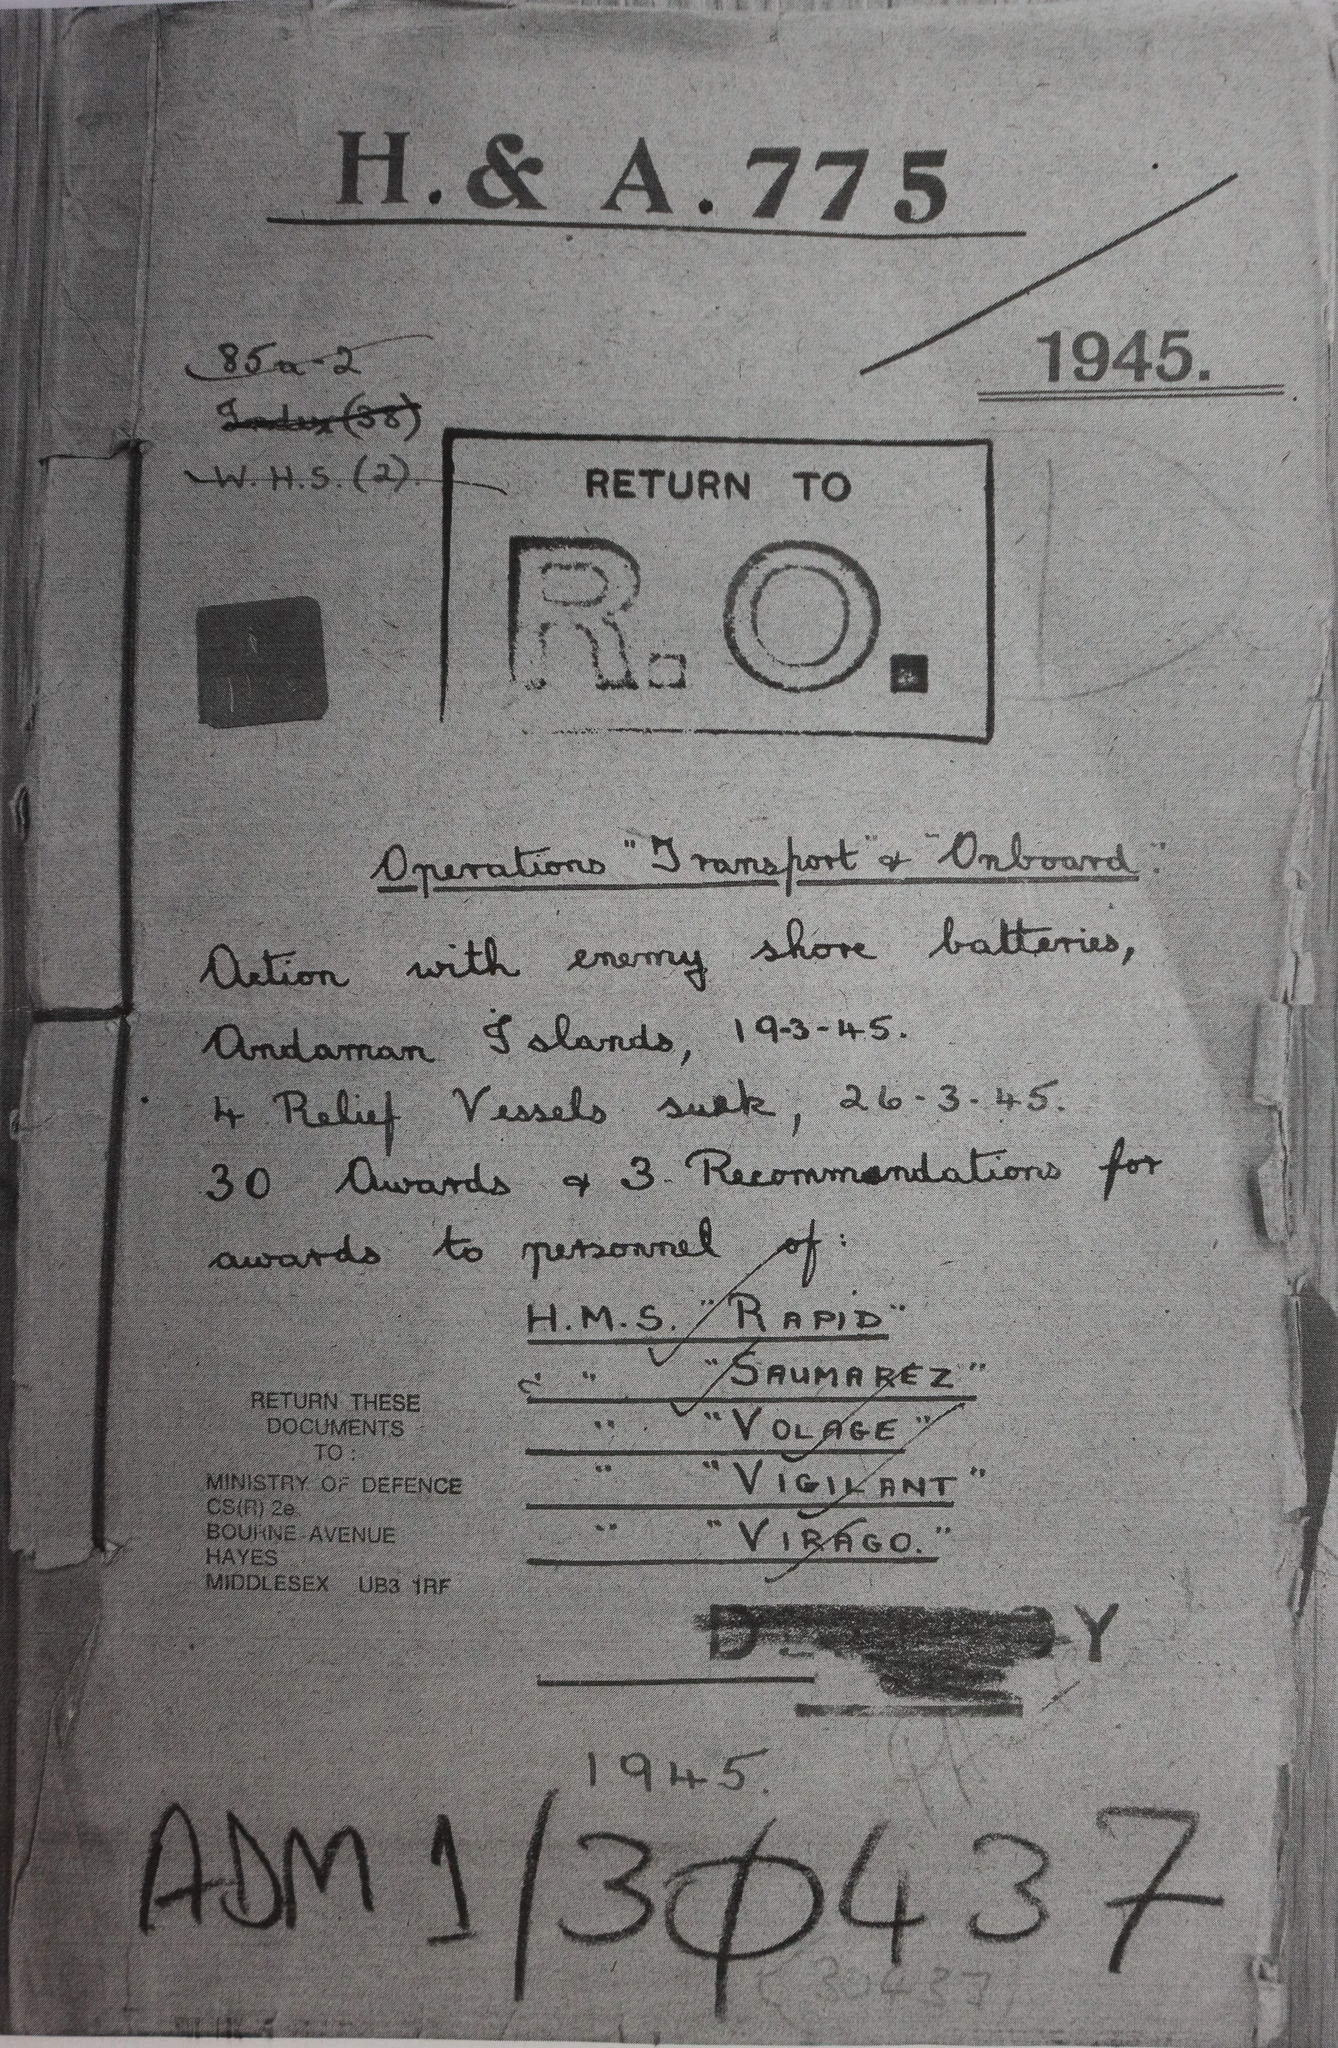 H. & A. 775
1945.
85a-2
Index (38)
W.H.S. (2).
RETURN TO
R.O.
Operations "Transport" & "Onboard".
Action with enemy shore batteries,
Andaman Islands, 19-3-45.
4 Relief Vessels sunk, 26-3-45.
30 Awards & 3 Recommendations for
awards to personnel of:
H.M.S. "RAPID"
" " "SAUMAREZ"
" "VOLAGE"
" "VIGILANT"
" "VIRAGO."
RETURN THESE
DOCUMENTS
TO:
MINISTRY OF DEFENCE
CS(R) 2e
BOURNE AVENUE
HAYES
MIDDLESEX UB3 1RF
1945.
ADM 1/30437
(30437)